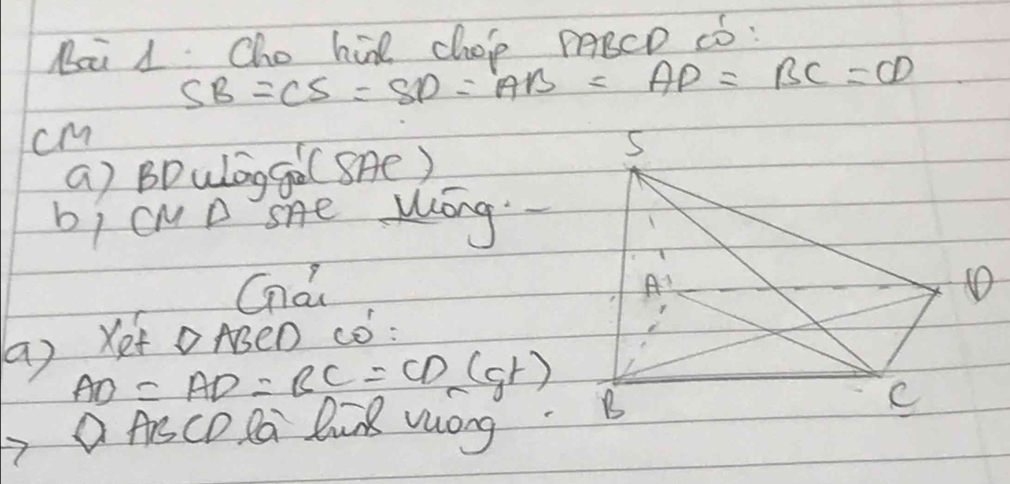 Bài 1. Cho hình chóp SABCD có:
SB = CS = SD = AB = AD = BC = CD
CM
a) BD vuông góc (SAC)
b, CM Δ SAC vuông.
S
A
D
B
C
Giải
a) Xét ◇ ABCD có:
AD = AD = BC = CD (gt)
→ ◇ ABCD là hình vuông.